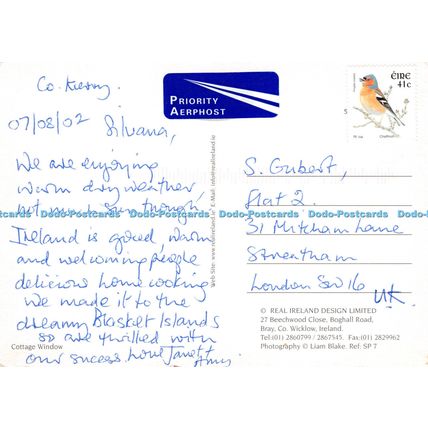 Co. Kerry.
07/08/02 Silvana,
We are enjoying
warm dry weather,
not much sun though.
Ireland is good, warm
and welcoming people
delicious home cooking
we made it to the
dreamy Blasket Islands
so are thrilled with
our success. Love Janet +
Cottage Window
PRIORITY
AERPHOST
ÉIRE
41c
S. Gubert,
Flat 2.
31 Mitcham Lane
Streatham
London SW16
UK.
Dodo-Postcards Dodo-Postcards Dodo-Postcards Dodo-Postcards Dodo-Postcards
Web Site: www.realireland.ie E-Mail: info@realireland.ie
© REAL IRELAND DESIGN LIMITED
27 Beechwood Close, Boghall Road,
Bray, Co. Wicklow, Ireland.
Tel:(01) 2860799 / 2867545. Fax:(01) 2829962
Photography © Liam Blake. Ref. SP 7